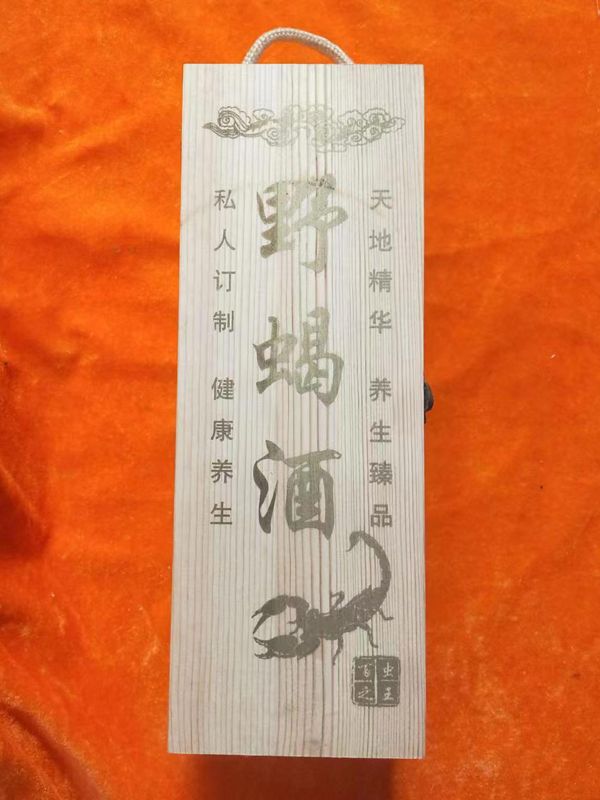 天地精华 养生臻品
野蝎酒
私人订制 健康养生
百虫
之王